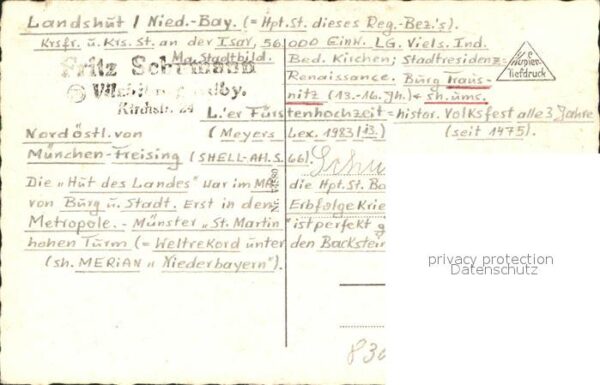 Landshut / Nied.-Bay. (= Hpt.St. dieses Reg.-Bez.'s).
Krsfr. u. Krs.St. an der Isar, 56 000 Einw. LG. Viels. Ind.
Ma. Stadtbild. Bed. Kirchen; Stadtresidenz=
Renaissance. Burg Traus-
nitz (13.-16. Jh.) & sh. ums.
Fritz
Vilsbiburg Ndby.
Kirchstr. 24
L.'er Fürstenhochzeit = histor. Volksfest alle 3 Jahre
(Meyers Lex. 1983/13.) (seit 1475).
Nordöstl. von
München-Freising (SHELL-Atl. S. 66).
Die „Hut des Landes" war im MA die Hpt.St. Ba
von Burg u. Stadt. Erst in den Erbfolge Krie
Metropole. - Münster „St. Martin" ist perfekt g
hohen Turm (= Weltrekord unter den Backstein
(sh. MERIAN „Niederbayern").
Kupfer-
Tiefdruck
privacy protection
Datenschutz